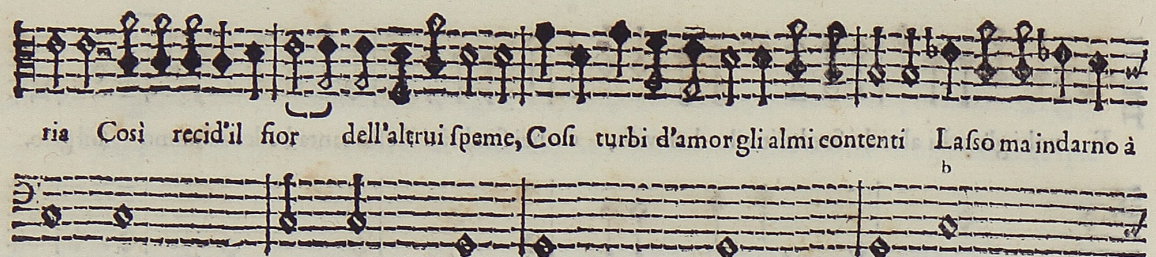 ria Così recid'il fior dell'altrui ſpeme, Coſi turbi d'amor gli almi contenti Laſso ma indarno à
b